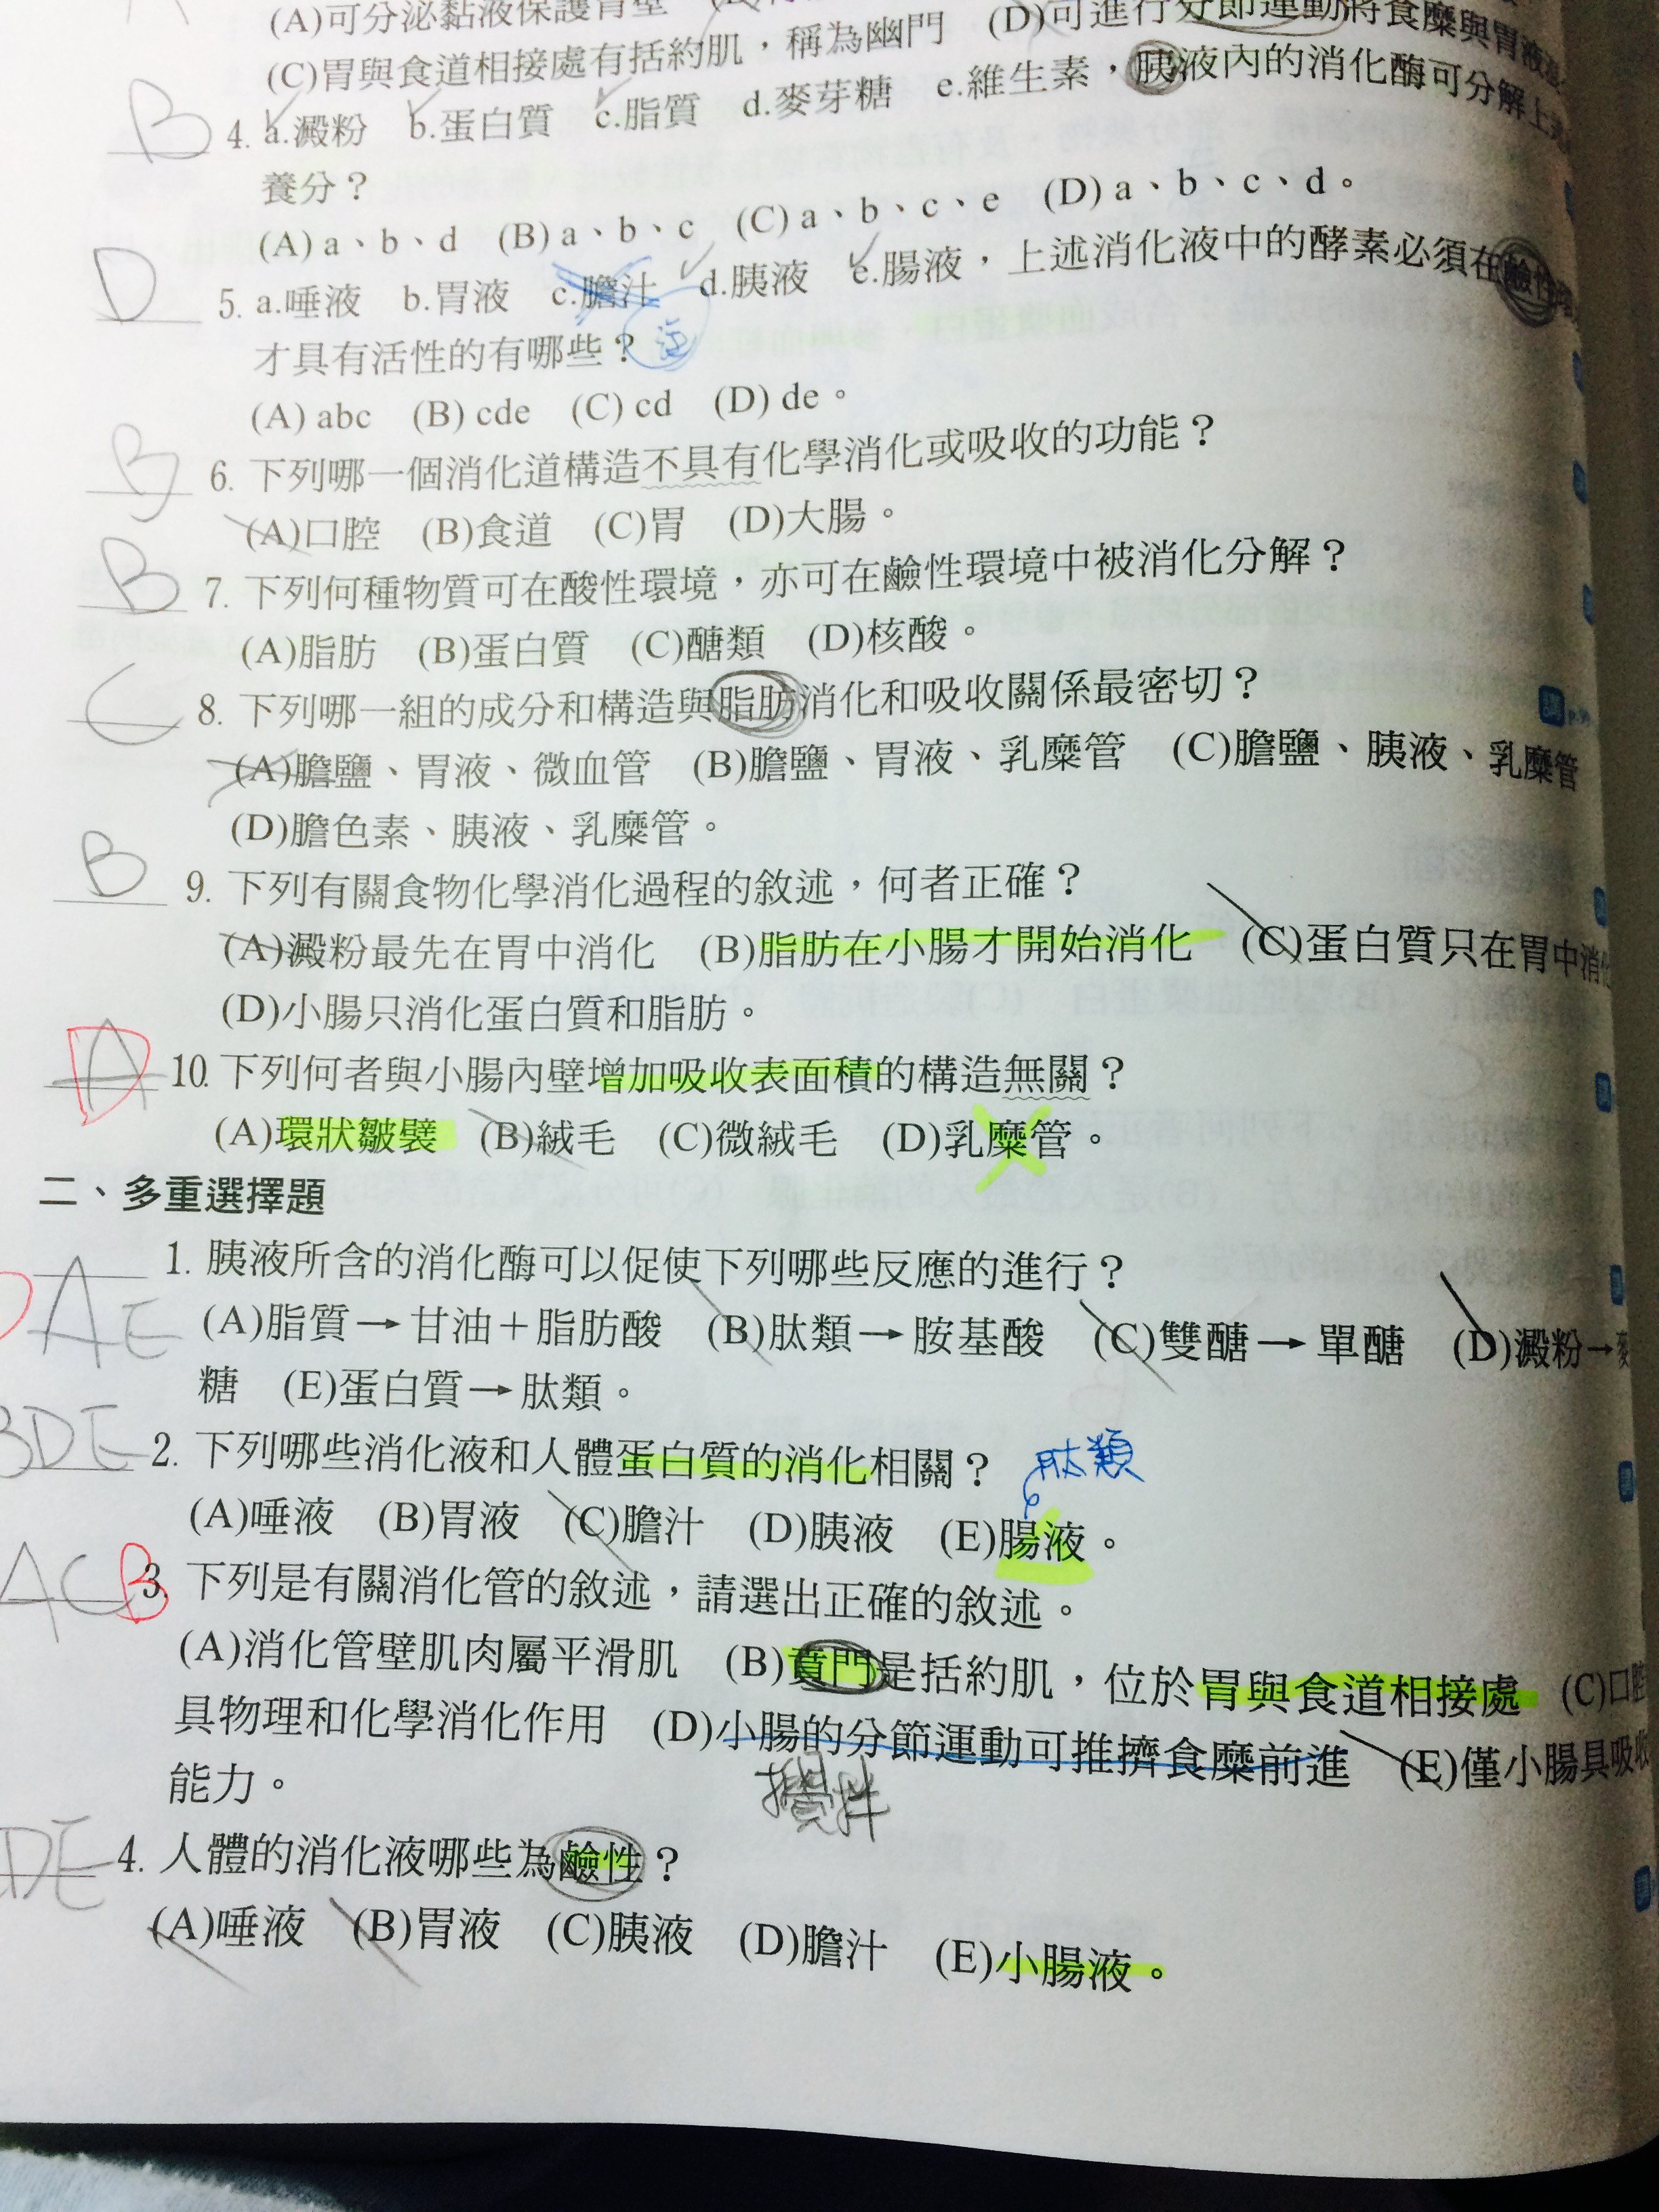 (A)可分泌黏液保護胃壁
(C)胃與食道相接處有括約肌，稱為幽門 (D)可進行分節運動將食糜與胃液
B 4. a.澱粉 b.蛋白質 c.脂質 d.麥芽糖 e.維生素，胰液內的消化酶可分解上
養分？
(A) a、b、d (B) a、b、c (C) a、b、c、e (D) a、b、c、d。
D 5. a.唾液 b.胃液 c.膽汁 d.胰液 e.腸液，上述消化液中的酵素必須在鹼性
才具有活性的有哪些？
(A) abc (B) cde (C) cd (D) de。
B 6. 下列哪一個消化道構造不具有化學消化或吸收的功能？
(A)口腔 (B)食道 (C)胃 (D)大腸。
B 7. 下列何種物質可在酸性環境，亦可在鹼性環境中被消化分解？
(A)脂肪 (B)蛋白質 (C)醣類 (D)核酸。
C 8. 下列哪一組的成分和構造與脂肪消化和吸收關係最密切？
(A)膽鹽、胃液、微血管 (B)膽鹽、胃液、乳糜管 (C)膽鹽、胰液、乳糜管
(D)膽色素、胰液、乳糜管。
B 9. 下列有關食物化學消化過程的敘述，何者正確？
(A)澱粉最先在胃中消化 (B)脂肪在小腸才開始消化 (C)蛋白質只在胃中消化
(D)小腸只消化蛋白質和脂肪。
A D 10. 下列何者與小腸內壁增加吸收表面積的構造無關？
(A)環狀皺襞 (B)絨毛 (C)微絨毛 (D)乳糜管。
二、多重選擇題
D AE 1. 胰液所含的消化酶可以促使下列哪些反應的進行？
(A)脂質→甘油＋脂肪酸 (B)肽類→胺基酸 (C)雙醣→單醣 (D)澱粉→麥
糖 (E)蛋白質→肽類。
BDE 2. 下列哪些消化液和人體蛋白質的消化相關？ 肽類
(A)唾液 (B)胃液 (C)膽汁 (D)胰液 (E)腸液。
AC B 3. 下列是有關消化管的敘述，請選出正確的敘述。
(A)消化管壁肌肉屬平滑肌 (B)賁門是括約肌，位於胃與食道相接處 (C)口腔
具物理和化學消化作用 (D)小腸的分節運動可推擠食糜前進 (E)僅小腸具吸收
能力。 攪拌
DE 4. 人體的消化液哪些為鹼性？
(A)唾液 (B)胃液 (C)胰液 (D)膽汁 (E)小腸液。